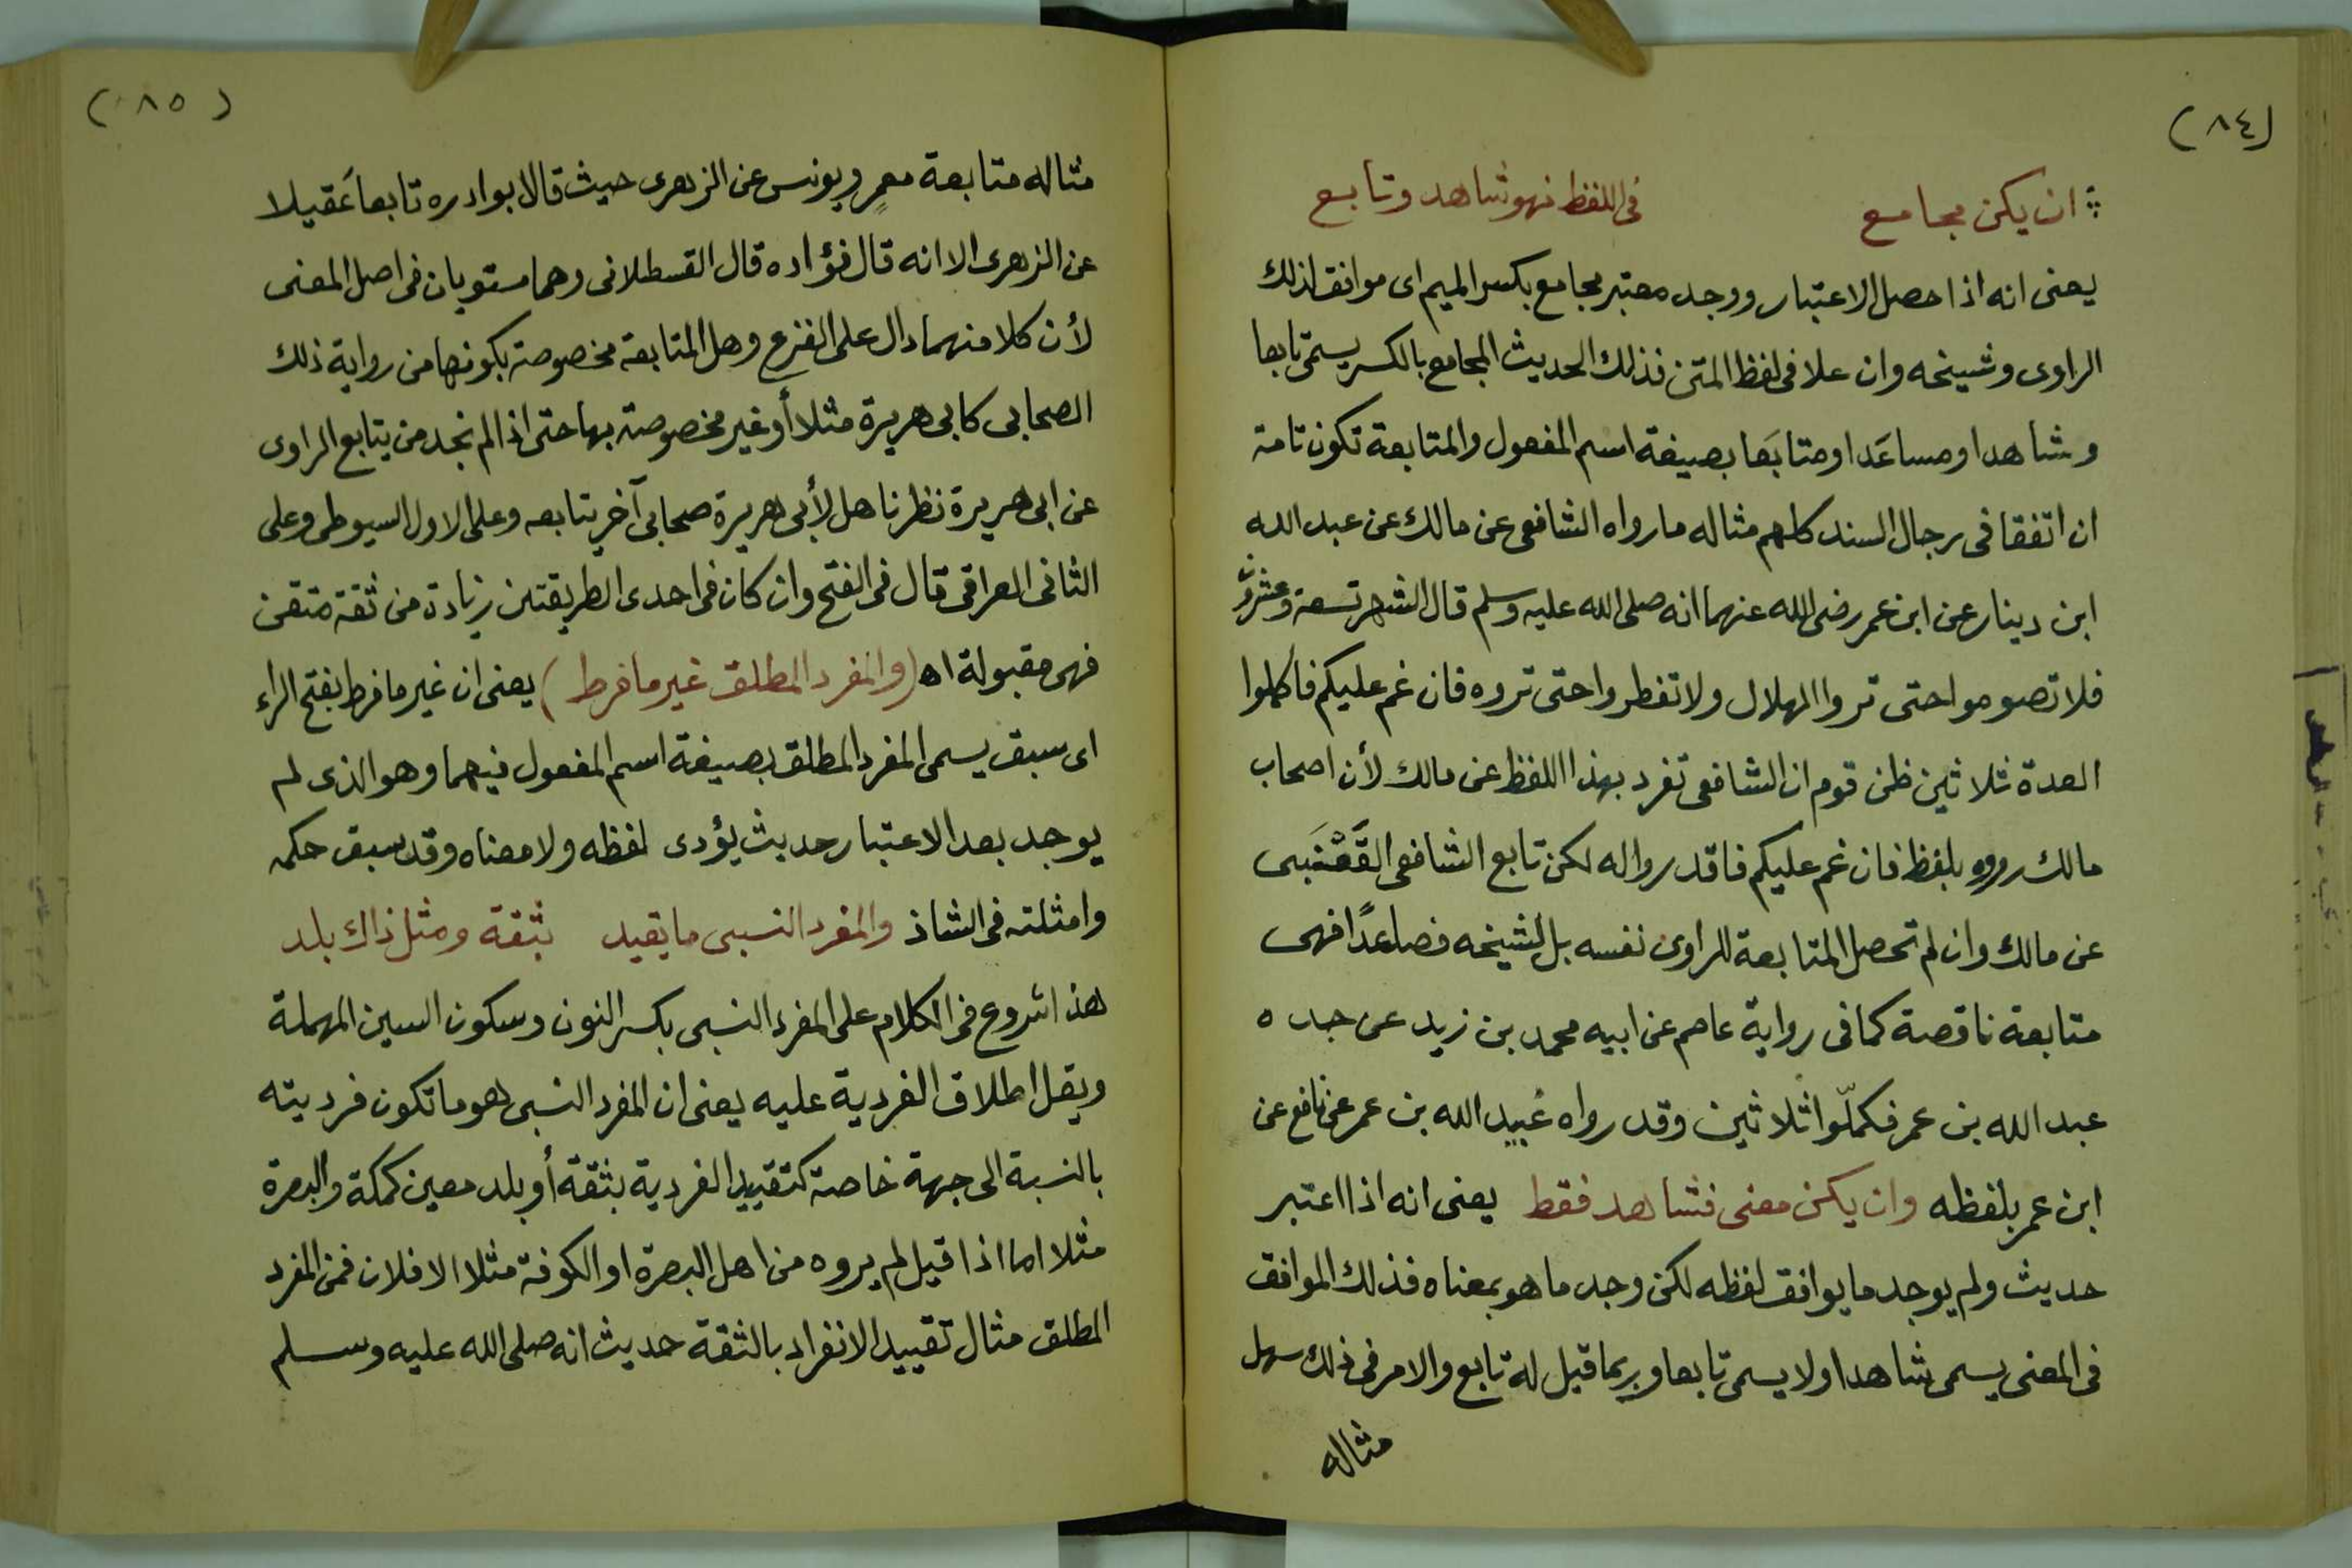 (٨٤)
ان يكن مجامع في اللفظ فهو شاهد وتابع
يعنى انه اذا حصل الاعتبار ووجد معتبر مجامع بكسر الميم اى موافق لذلك
الراوى وشيخه وان علا فى لفظ المتن فذلك الحديث المجامع بالكسر يسمى تابعا
وشاهدا ومساعَدا ومتابَعا بصيغة اسم المفعول والمتابعة تكون تامة
ان اتفقا فى رجال السند كلهم مثاله ما رواه الشافعى عن مالك عن عبد الله
ابن دينار عن ابن عمر رضى الله عنهما انه صلى الله عليه وسلم قال الشهر تسعة وعشرون
فلا تصوموا حتى تروا الهلال ولا تفطروا حتى تروه فان غم عليكم فأكملوا
العدة ثلاثين ظن قوم ان الشافعى تفرد بهذا اللفظ عن مالك لأن اصحاب
مالك رووه بلفظ فان غم عليكم فاقدروا له لكن تابع الشافعى القَعْنَبى
عن مالك وان لم تحصل المتابعة للراوى نفسه بل لشيخه فصاعدًا فهى
متابعة ناقصة كما فى رواية عاصم عن ابيه محمد بن زيد عن جده
عبد الله بن عمر فكمّلوا ثلاثين وقد رواه عُبيد الله بن عمر عن نافع عن
ابن عمر بلفظه وان يكن معنى فشاهد فقط يعنى انه اذا اعتبر
حديث ولم يوجد ما يوافق لفظه لكن وجد ما هو بمعناه فذلك الموافق
فى المعنى يسمى شاهدا ولا يسمى تابعا وربما قيل له تابع والامر فى ذلك سهل
مثاله
(٨٥)
مثاله متابعة معمرٍ ويونس عن الزهرى حيث قالا بوادره تابعا عَقيلا
عن الزهرى الا انه قال فؤاده قال القسطلانى وهما مستويان فى اصل المعنى
لأن كلا منهما دال على الفزع وهل المتابعة مخصوصة بكونها من رواية ذلك
الصحابى كابى هريرة مثلا أو غير مخصوصة بها حتى اذا لم نجد من يتابع الراوى
عن ابى هريرة نظرنا هل لأبى هريرة صحابى آخر يتابعه وعلى الاول السيوطى وعلى
الثانى العراقى قال فى الفتح وان كان فى احدى الطريقتين زيادة من ثقة متقن
فهى مقبولة اه (والمفرد المطلق غير ما فرط) يعنى ان غير ما فرط بفتح الراء
اى سبق يسمى المفرد المطلق بصيغة اسم المفعول فيهما وهو الذى لم
يوجد بعد الاعتبار حديث يؤدى لفظه ولا معناه وقد سبق حكمه
وامثلته فى الشاذ والمفرد النسبى ما يقيد بثقة ومثل ذاك بلد
هذا شروع فى الكلام على المفرد النسبى بكسر النون وسكون السين المهملة
ويقل اطلاق الفردية عليه يعنى ان المفرد النسبى هو ما تكون فرديته
بالنسبة الى جهة خاصة كتقييد الفردية بثقة أو بلد معين كمكة والبصرة
مثلا اما اذا قيل لم يروه من اهل البصرة او الكوفة مثلا الا فلان فمن المفرد
المطلق مثال تقييد الانفراد بالثقة حديث انه صلى الله عليه وسلم